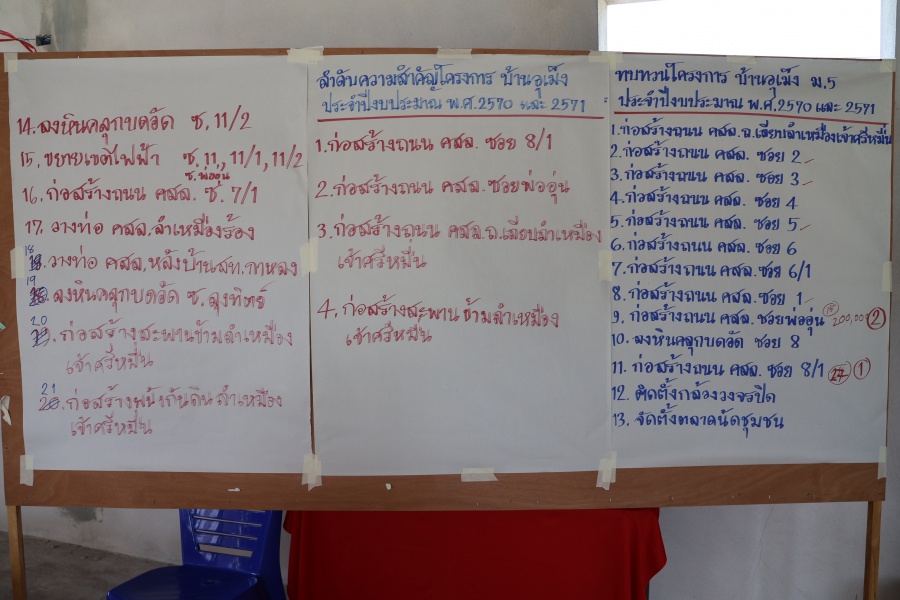 14. ลงหินคลุกบดอัด ซ. 11/2
15. ขยายเขตไฟฟ้า ซ. 11, 11/1, 11/2
ซ.พ่ออุ่น
16. ก่อสร้างถนน คสล. ซ. 7/1
17. วางท่อ คสล. ลำเหมืองร้อง
18. วางท่อ คสล. หลังบ้านสท.กาหลง
19. ลงหินคลุกบดอัด ซ. ลุงทิตย์
20. ก่อสร้างสะพานข้ามลำเหมือง
เจ้าศรีหมื่น
21. ก่อสร้างพนังกั้นดินลำเหมือง
เจ้าศรีหมื่น
ลำดับความสำคัญโครงการ บ้านอุเม็ง
ประจำปีงบประมาณ พ.ศ.2570 และ 2571
1. ก่อสร้างถนน คสล. ซอย 8/1
2. ก่อสร้างถนน คสล. ซอยพ่ออุ่น
3. ก่อสร้างถนน คสล.ถ.เลียบลำเหมือง
เจ้าศรีหมื่น
4. ก่อสร้างสะพานข้ามลำเหมือง
เจ้าศรีหมื่น
ทบทวนโครงการ บ้านอุเม็ง ม.5
ประจำปีงบประมาณ พ.ศ.2570 และ 2571
1. ก่อสร้างถนน คสล.ถ.เลียบลำเหมืองเจ้าศรีหมื่น
2. ก่อสร้างถนน คสล. ซอย 2
3. ก่อสร้างถนน คสล. ซอย 3
4. ก่อสร้างถนน คสล. ซอย 4
5. ก่อสร้างถนน คสล. ซอย 5
6. ก่อสร้างถนน คสล. ซอย 6
7. ก่อสร้างถนน คสล. ซอย 6/1
8. ก่อสร้างถนน คสล. ซอย 1
9. ก่อสร้างถนน คสล. ซอยพ่ออุ่น 200,000 2
10. ลงหินคลุกบดอัด ซอย 8
11. ก่อสร้างถนน คสล. ซอย 8/1 27 1
12. ติดตั้งกล้องวงจรปิด
13. จัดตั้งตลาดนัดชุมชน